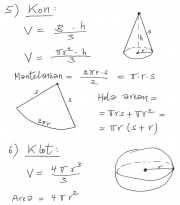 5) Kon:
V = B · h / 3
h
s
r
V = πr² · h / 3
Mantelarean = 2πr · s / 2 = π · r · s
s
s
2πr
Hela arean =
= πrs + πr² =
= πr (s + r)
6) Klot:
V = 4πr³ / 3
r
Area = 4πr²